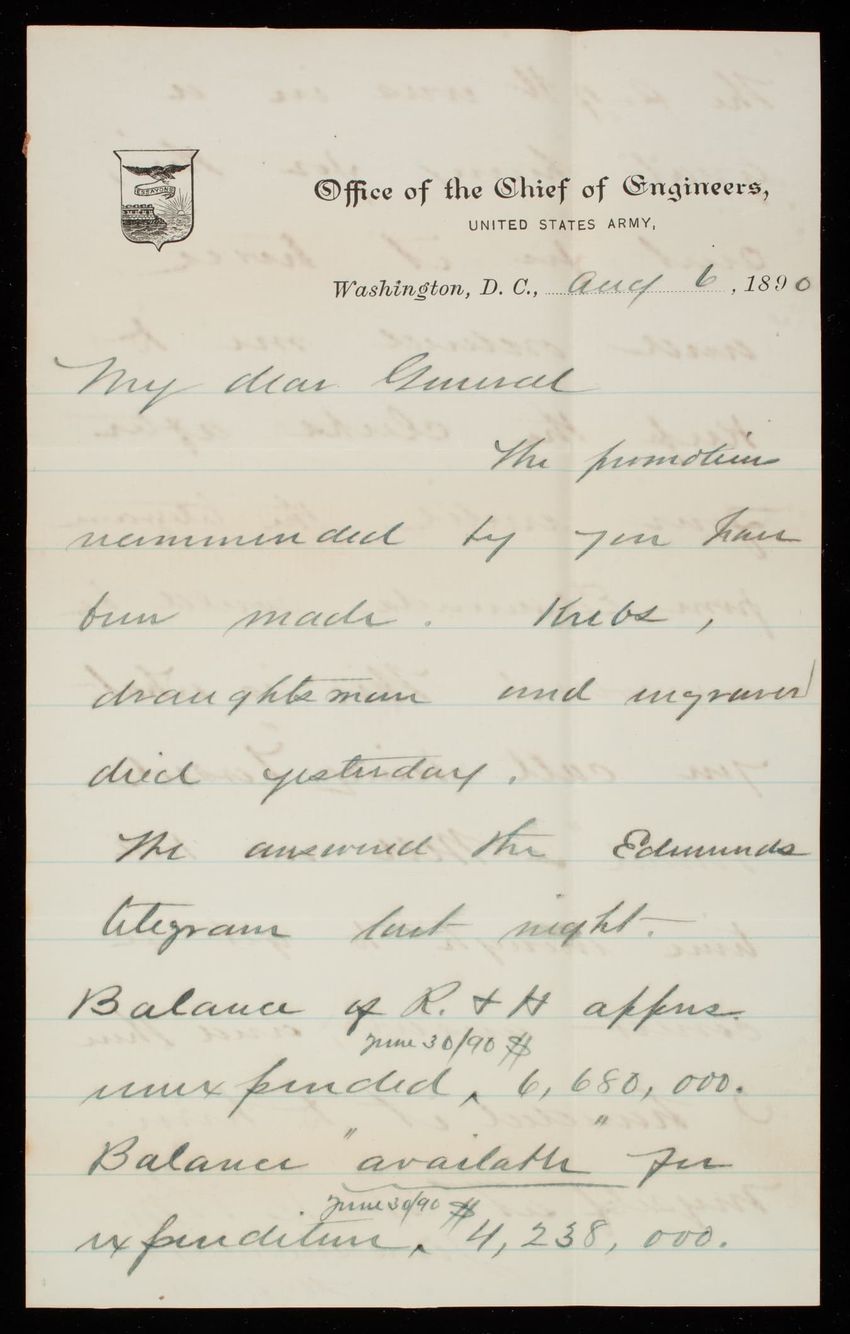 ESSAYONS
Office of the Chief of Engineers,
UNITED STATES ARMY,
Washington, D. C., Aug 6, 1890
My dear General
The promotions
recommended by you have
been made. Krebs,
draughtsman and engraver
died yesterday.
We answered the Edmunds
telegram last night.
Balance of R. & H apprns.
June 30/90 $
unexpended, 6,680,000.
Balance "available" for
June 30/90 $
expenditure, 4,238,000.